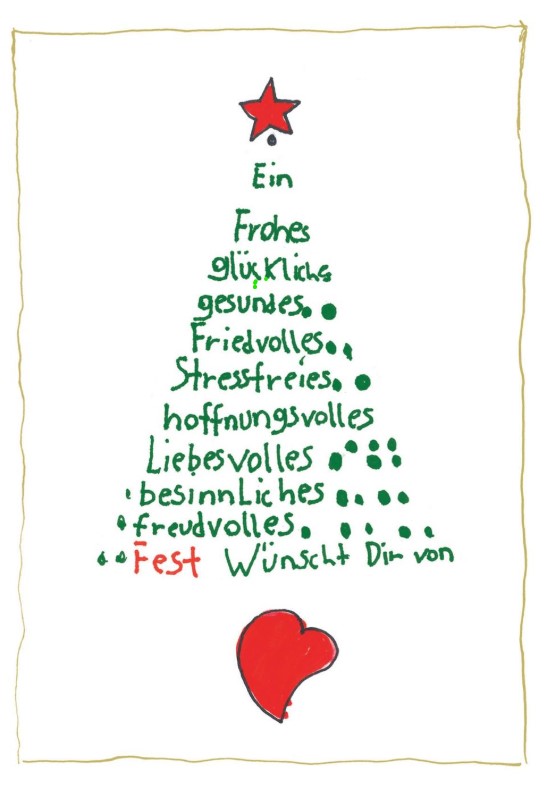 Ein
Frohes
glückliche
gesundes
Friedvolles
Stressfreies
hoffnungsvolles
Liebesvolles
besinnLiches
freudvolles
Fest Wünscht Dir von